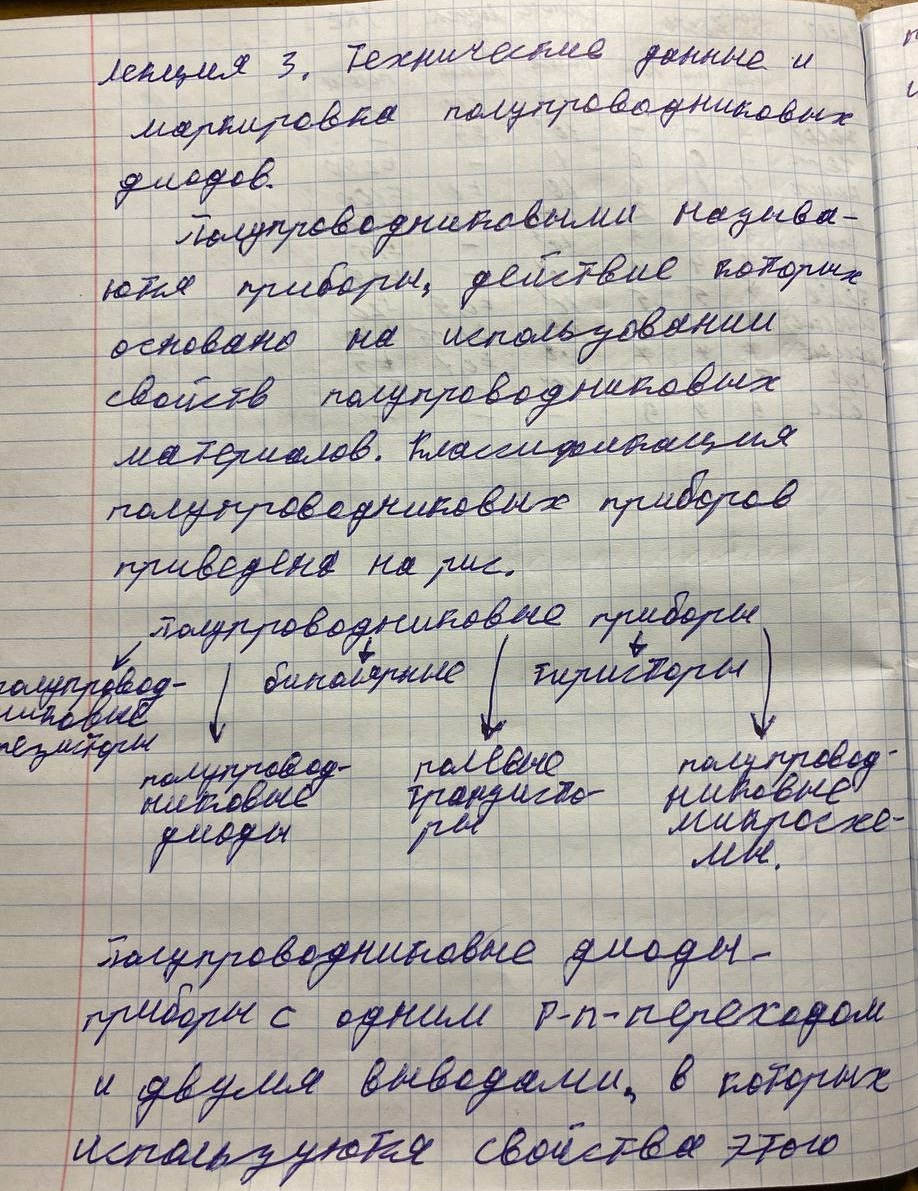 Лекция 3. Технические данные и
маркировка полупроводниковых
диодов.
Полупроводниковыми называ-
ются приборы, действие которых
основано на использовании
свойств полупроводниковых
материалов. Классификация
полупроводниковых приборов
приведена на рис.
Полупроводниковые приборы
полупровод-
никовые
резисторы
биполярные
тиристоры
полупровод-
никовые
диоды
полевые
транзисто-
ры
полупровод-
никовые
микросхе-
мы.
Полупроводниковые диоды-
приборы с одним p-n-переходом
и двумя выводами, в которых
используются свойства этого